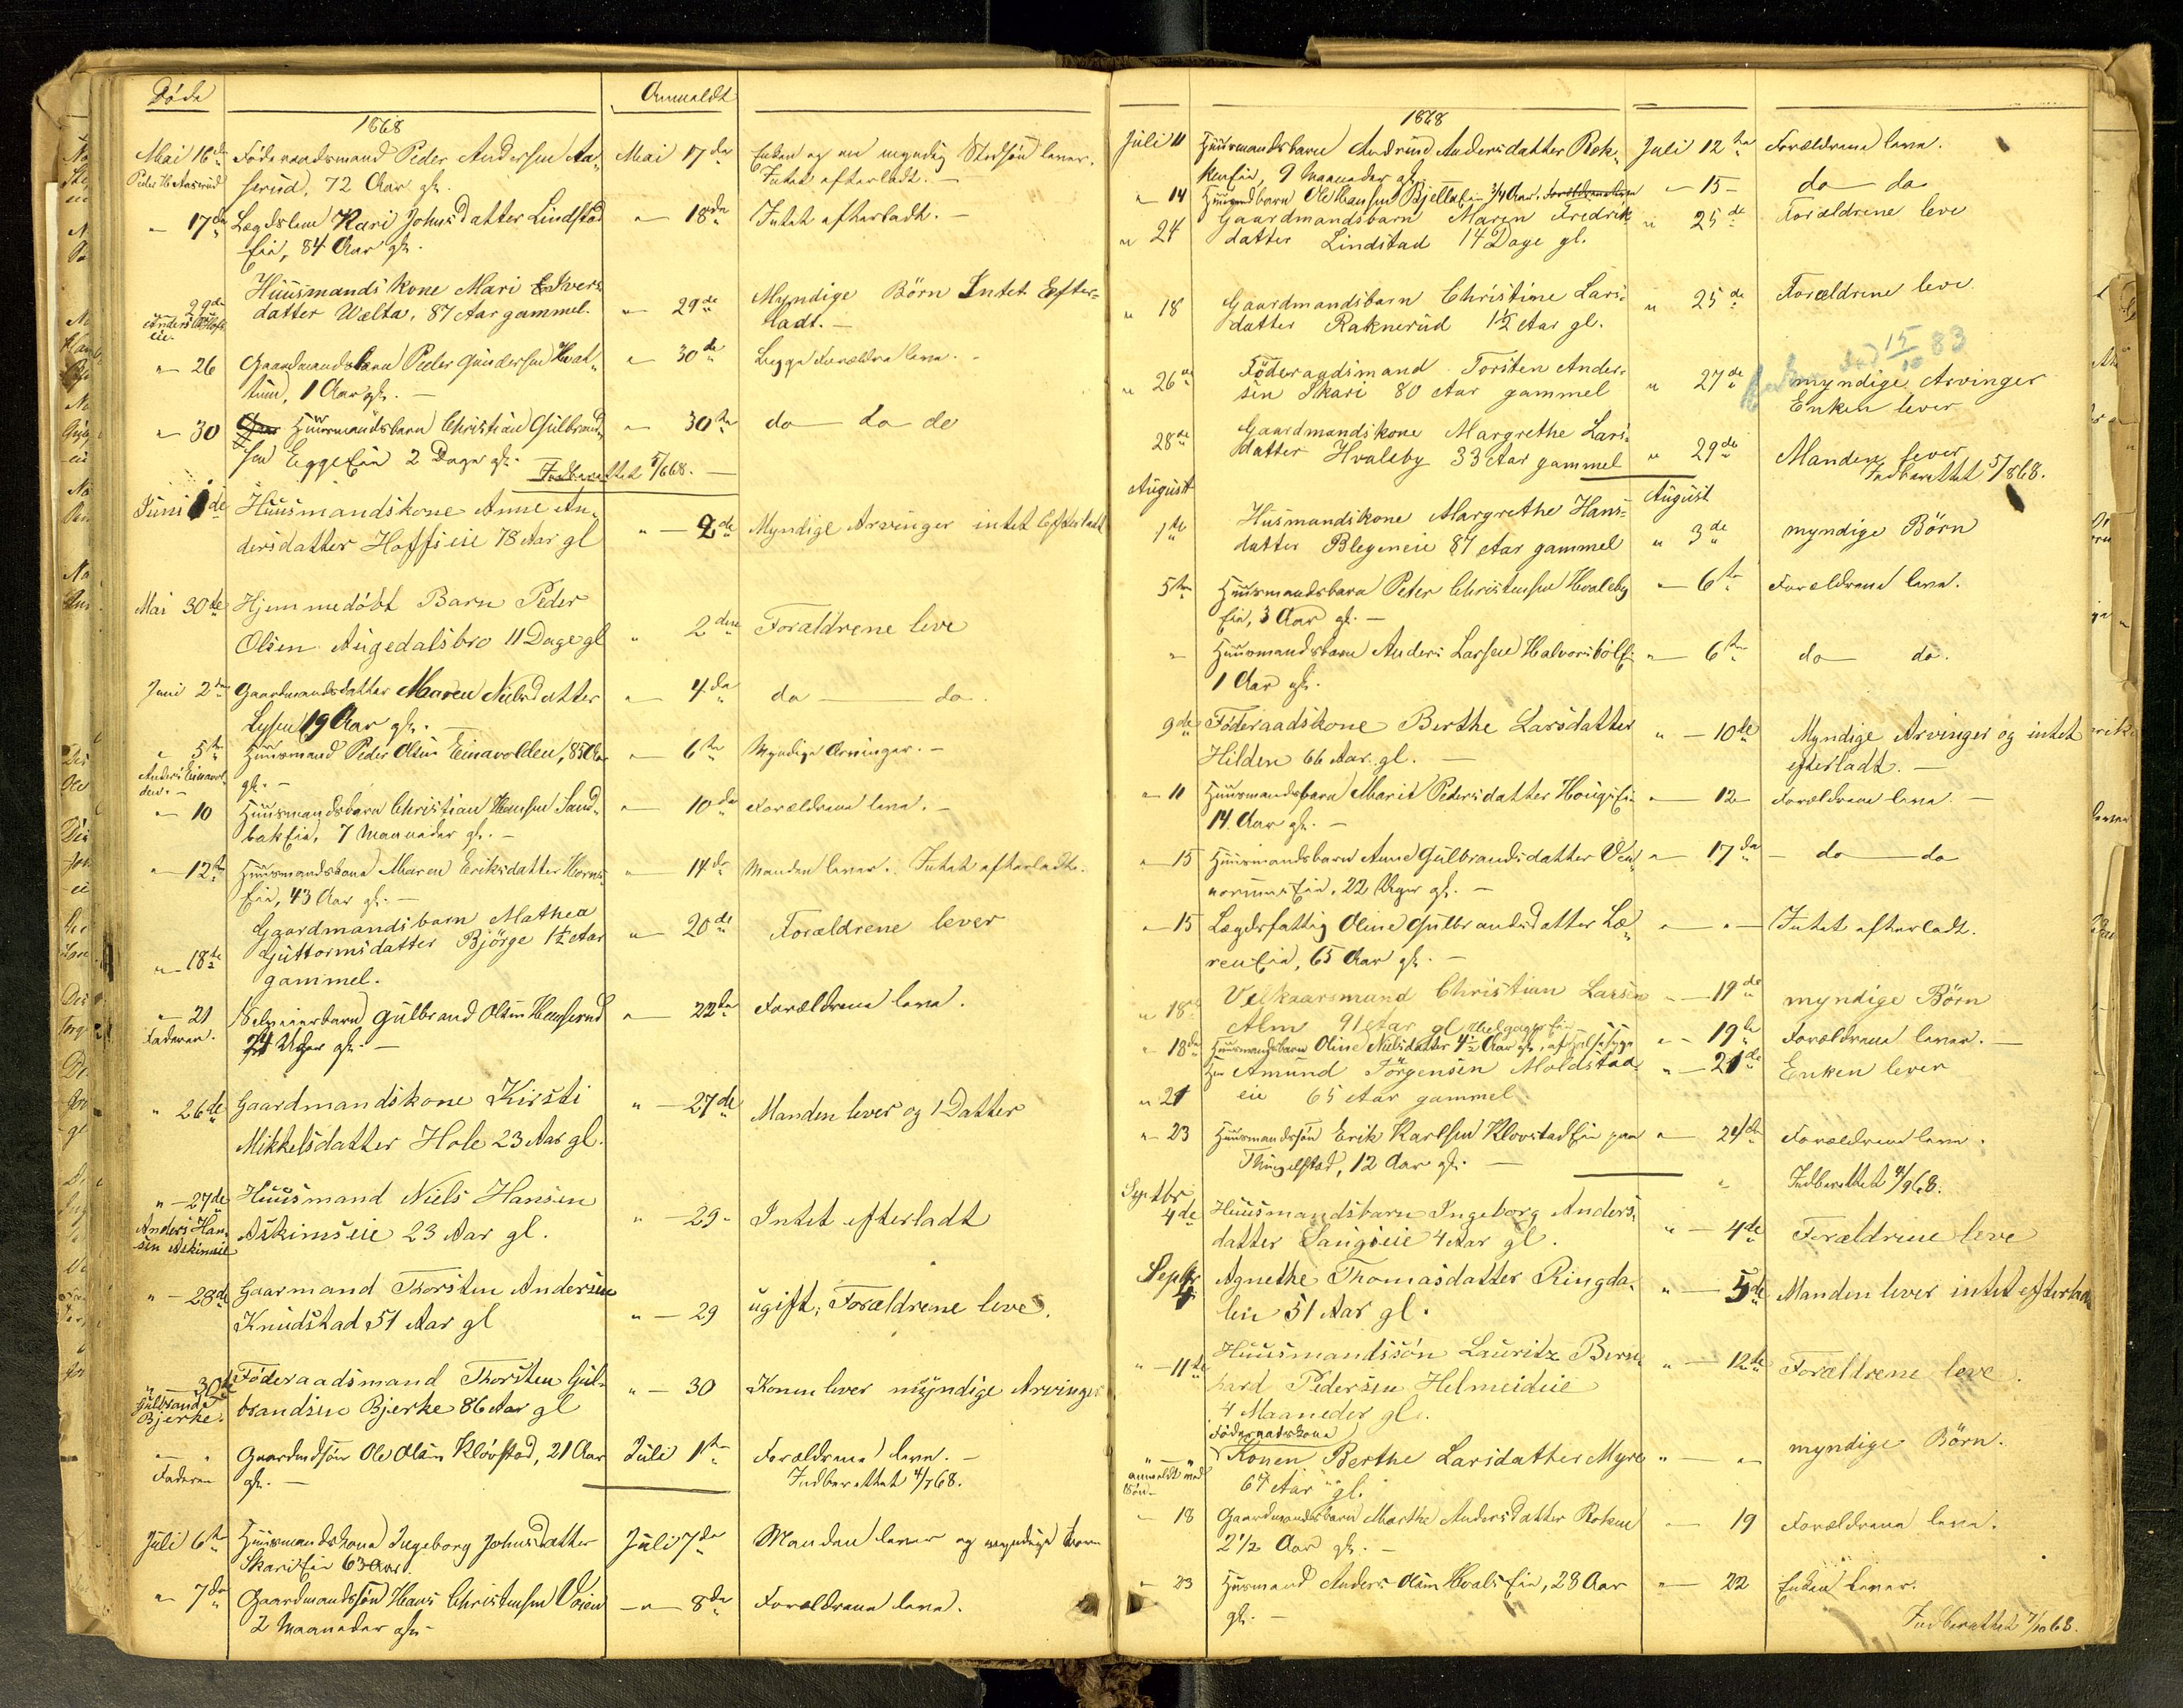 Døde
Anmeldt
1868
Mai 16de Föderaadsmand Peder Andersen Aa- Mai 17de Enken og en myndig Stedsøn lever.
Peder H Aaserud serud, 72 Aar gl. Intet efterladt. —
" — 17de Lægdslem Kari Johnsdatter Lindstad " — 18de Intet efterladt. —
Eie, 84 Aar gl.
Huusmandskone Mari Ivers-
29de datter Wælta, 87 Aar gammel. " — 29de Myndige Börn Intet Efter-
eie. ladt. —
" — 26 Gaardmandsbarn Peder Gundersen Hval- " — 30de Begge Forældre leve. —
tum, 1 Aar gl. —
" — 30 Huusmandsbarn Christian Gulbrand- " — 30te do do do
sen Egge Eie 2 Dage gl. Indberettet 5/668. —
Juni 1de Huusmandskone Anne An- " — 2de Myndige Arvinger intet Efterladt
dersdatter Hoffseie 78 Aar gl
Mai 30te Hjemmedöbt Barn Peder
Olsen Augedalsbro 11 Dage gl " 2den Forældrene leve
Juni 2den Gaardmandsdatter Maren Nielsdatter " — 4de do — do.
Lysen 19 Aar gl. —
" 5te Huusmand Peder Olsen Einavolden, 85 Aar " — 6te Myndige Arvinger. —
Anders Einavol-
den. — gl. —
" — 10 Huusmandsbarn Christian Hansen Sand- " — 10de Forældrene leve. —
bak Eie, 7 Maaneder gl. —
" — 12te Huusmandskone Maren Eriksdatter Horns- " — 14de Manden lever. Intet efterladt.
Eie, 43 Aar gl. —
Gaardmandsbarn Mathea
" — 18te Guttormsdatter Björge 1½ Aar " — 20de Forældrene lever
gammel.
" — 21 Selveierbarn Gulbrand Olsen Hauserud " — 22de Forældrene leve.
Faderen. 24 Uger gl. —
" 26de Gaardmandskone Kirsti " — 27de Manden lever og 1 Datter
Mikkelsdatter Hole 23 Aar gl.
" — 27de Huusmand Niels Hansen
Anders Han- Askimseie 23 Aar gl. " — 29 - Intet efterladt
sen Askimseie
" — 28de Gaarmand Thorsten Andersen
Knudstad 51 Aar gl " — 29 ugift, Forældrene leve.
" — 30te Föderaadsmand Thorsten Gul- " — 30 Konen lever myndige Arvinger
Gulbrand brandsen Bjerke 86 Aar gl
Bjerke.
" — " Gaardmdsøn Ole Olsen Klövstad, 21 Aar Juli 1te Forældrene leve. —
Faderen gl. — Indberettet 4/768.
Juli 6te Huusmandskone Ingeborg Johnsdatter Juli 7de Manden lever og myndige Børn
Skari Eie 63 Aar.
" 7de Gaardmandssøn Hans Christensen Woien — " — 8de Forældrene leve.
2 Maaneder gl. —
1868
Juli 11 Huusmandsbarn Andrine Andersdatter Rek- Juli 12te Forældrene leve.
ken Eie, 9 Maaneder gl.
" 14 Huusmandsbarn Ole Hansen Bjella Eie 3/4 Aar. Forældrene leve " — 15 — do do
" 24 Gaardmandsbarn Maren Fredrik- " 25de Forældrene leve
datter Lindstad 14 Dage gl.
" 18 Gaardmandsbarn Christine Lars- " 25de Forældrene leve
datter Raknerud 1½ Aar gl.
Enken død 15/10 83
" 26de Föderaadsmand Torsten Ander- " 27de myndige Arvinger
sen Skari 80 Aar gammel Enken lever
28de Gaardmandskone Margrethe Lars- " 29de Manden lever
datter Hvaleby 33 Aar gammel Indberettet 5/868.
August August
1te Husmandskone Margrethe Hans- " 3de myndige Börn
datter Blegeneie 87 Aar gammel
5te Huusmandsbarn Peter Christensen Hvaleby " — 6te Forældrene leve.
Eie, 3 Aar gl. —
" Huusmandsbarn Anders Larsen Halvorsböl Eie " — 6te do do.
1 Aar gl.
9de Föderaadskone Berthe Larsdatter " — 10de Myndige Arvinger og intet
Hilden 66 Aar gl. — efterladt. —
" 11 Huusmandsbarn Marit Pedersdatter Hougs Eie " — 12 Forældrene leve. —
14 Aar gl. —
" — 15 Huusmandsbarn Anne Gulbrandsdatter Ven- " — 17de — do — do
Eie, 22 Uger gl. —
" — 15 Lægdsfattig Oline Gulbrandsdatter Læ- " — " — Intet efterladt.
ren Eie, 65 Aar gl. —
" 18de Velkaarsmand Christian Larsen " — 19de myndige Börn
Alm 91 Aar gl
" 18de Huusmandsbarn Oline Nielsdatter 4½ Aar gl. " — 19de Forældrene lever. —
" 21 Amund Jörgensen Moldstad- " — 21de Enken lever
eie 65 Aar gammel
" 23 Huusmandssøn Erik Karlsen Klovstad Eie paa " — 24de Forældrene leve.
Thingelstad, 12 Aar gl. —
Indberettet 4/968.
Septbr
4de Huusmandsbarn Ingeborg Anders- " — 4de Forældrene leve
datter Sangseie 4 Aar gl.
Septbr
4 Agnethe Thomasdatter Ringda- " — 5de Manden lever intet efterladt
len 51 Aar gl.
" — 11te Huusmandssön Lauritz Bern- " — 12te Forældrene leve.
hard Pedersen Helmeideie
4 Maaneder gl.
Föderaadskone
" — " Konen Berthe Larsdatter Myre " — " myndige Börn.
anmeldt med
Sön — 67 Aar gl.
" 18 Gaardmandsbarn Marthe Andersdatter Roken " — 19 Forældrene leve.
2½ Aar gl. —
" 23 Husmand Anders Olsen Hvals Eie, 28 Aar " — 22 Enken lever.
gl. —
Indberettet 7/1068.